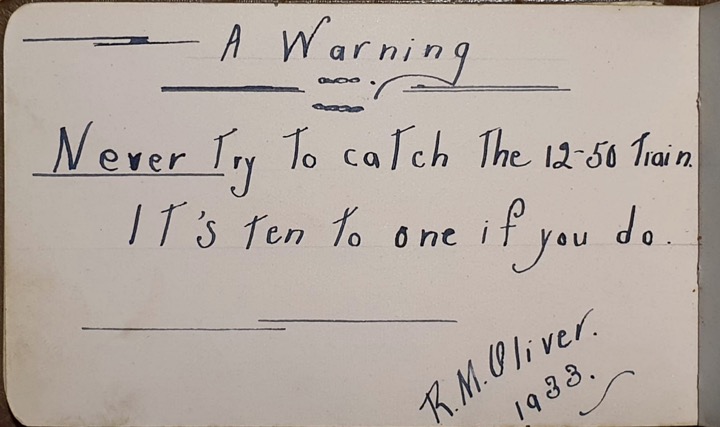 A Warning
Never Try To catch The 12-50 Train.
IT's Ten To one if you do.
R.M.Oliver.
1933.